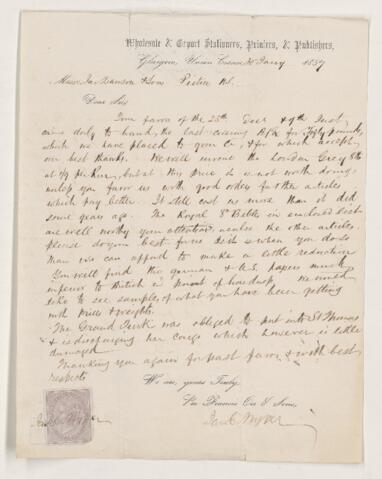 Wholesale & Export Stationers, Printers, & Publishers,
Glasgow, Union 30 Jany 1857
Messrs Dawson & Son Pictou N.S.
Dear Sirs
Your favors of the 25th Decr & 9th Inst
came duly to hand, the last covering B/E for Fifty pounds,
which we have placed to your Cr, & for which accept
our best thanks. We will invoice the London Grey 8th
at per Ream, but at this price it is not worth doing,
unless you favor us with good orders for other articles
which pay better. It still cost us more than it did
some years ago. The Royal 8o Bibles in enclosed list
are well worthy your attention, as also the other articles.
please do your best for us is & when you do so
then we can afford to make a little reduction
You will find the German & U.S. papers much
inferior to British in point of We would
like to see samples of what you have been getting
with prices & weights.
The Grand Turk was obliged to put into St Thomas
& is discharging her cargo which however is little
damaged.
Thanking you again for past favors & with best
respects
We are, yours Truly,
Orr & Sons,